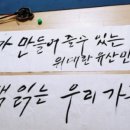 가 만들어 줄수 있는
위대한 유산인
책 읽는 우리 가